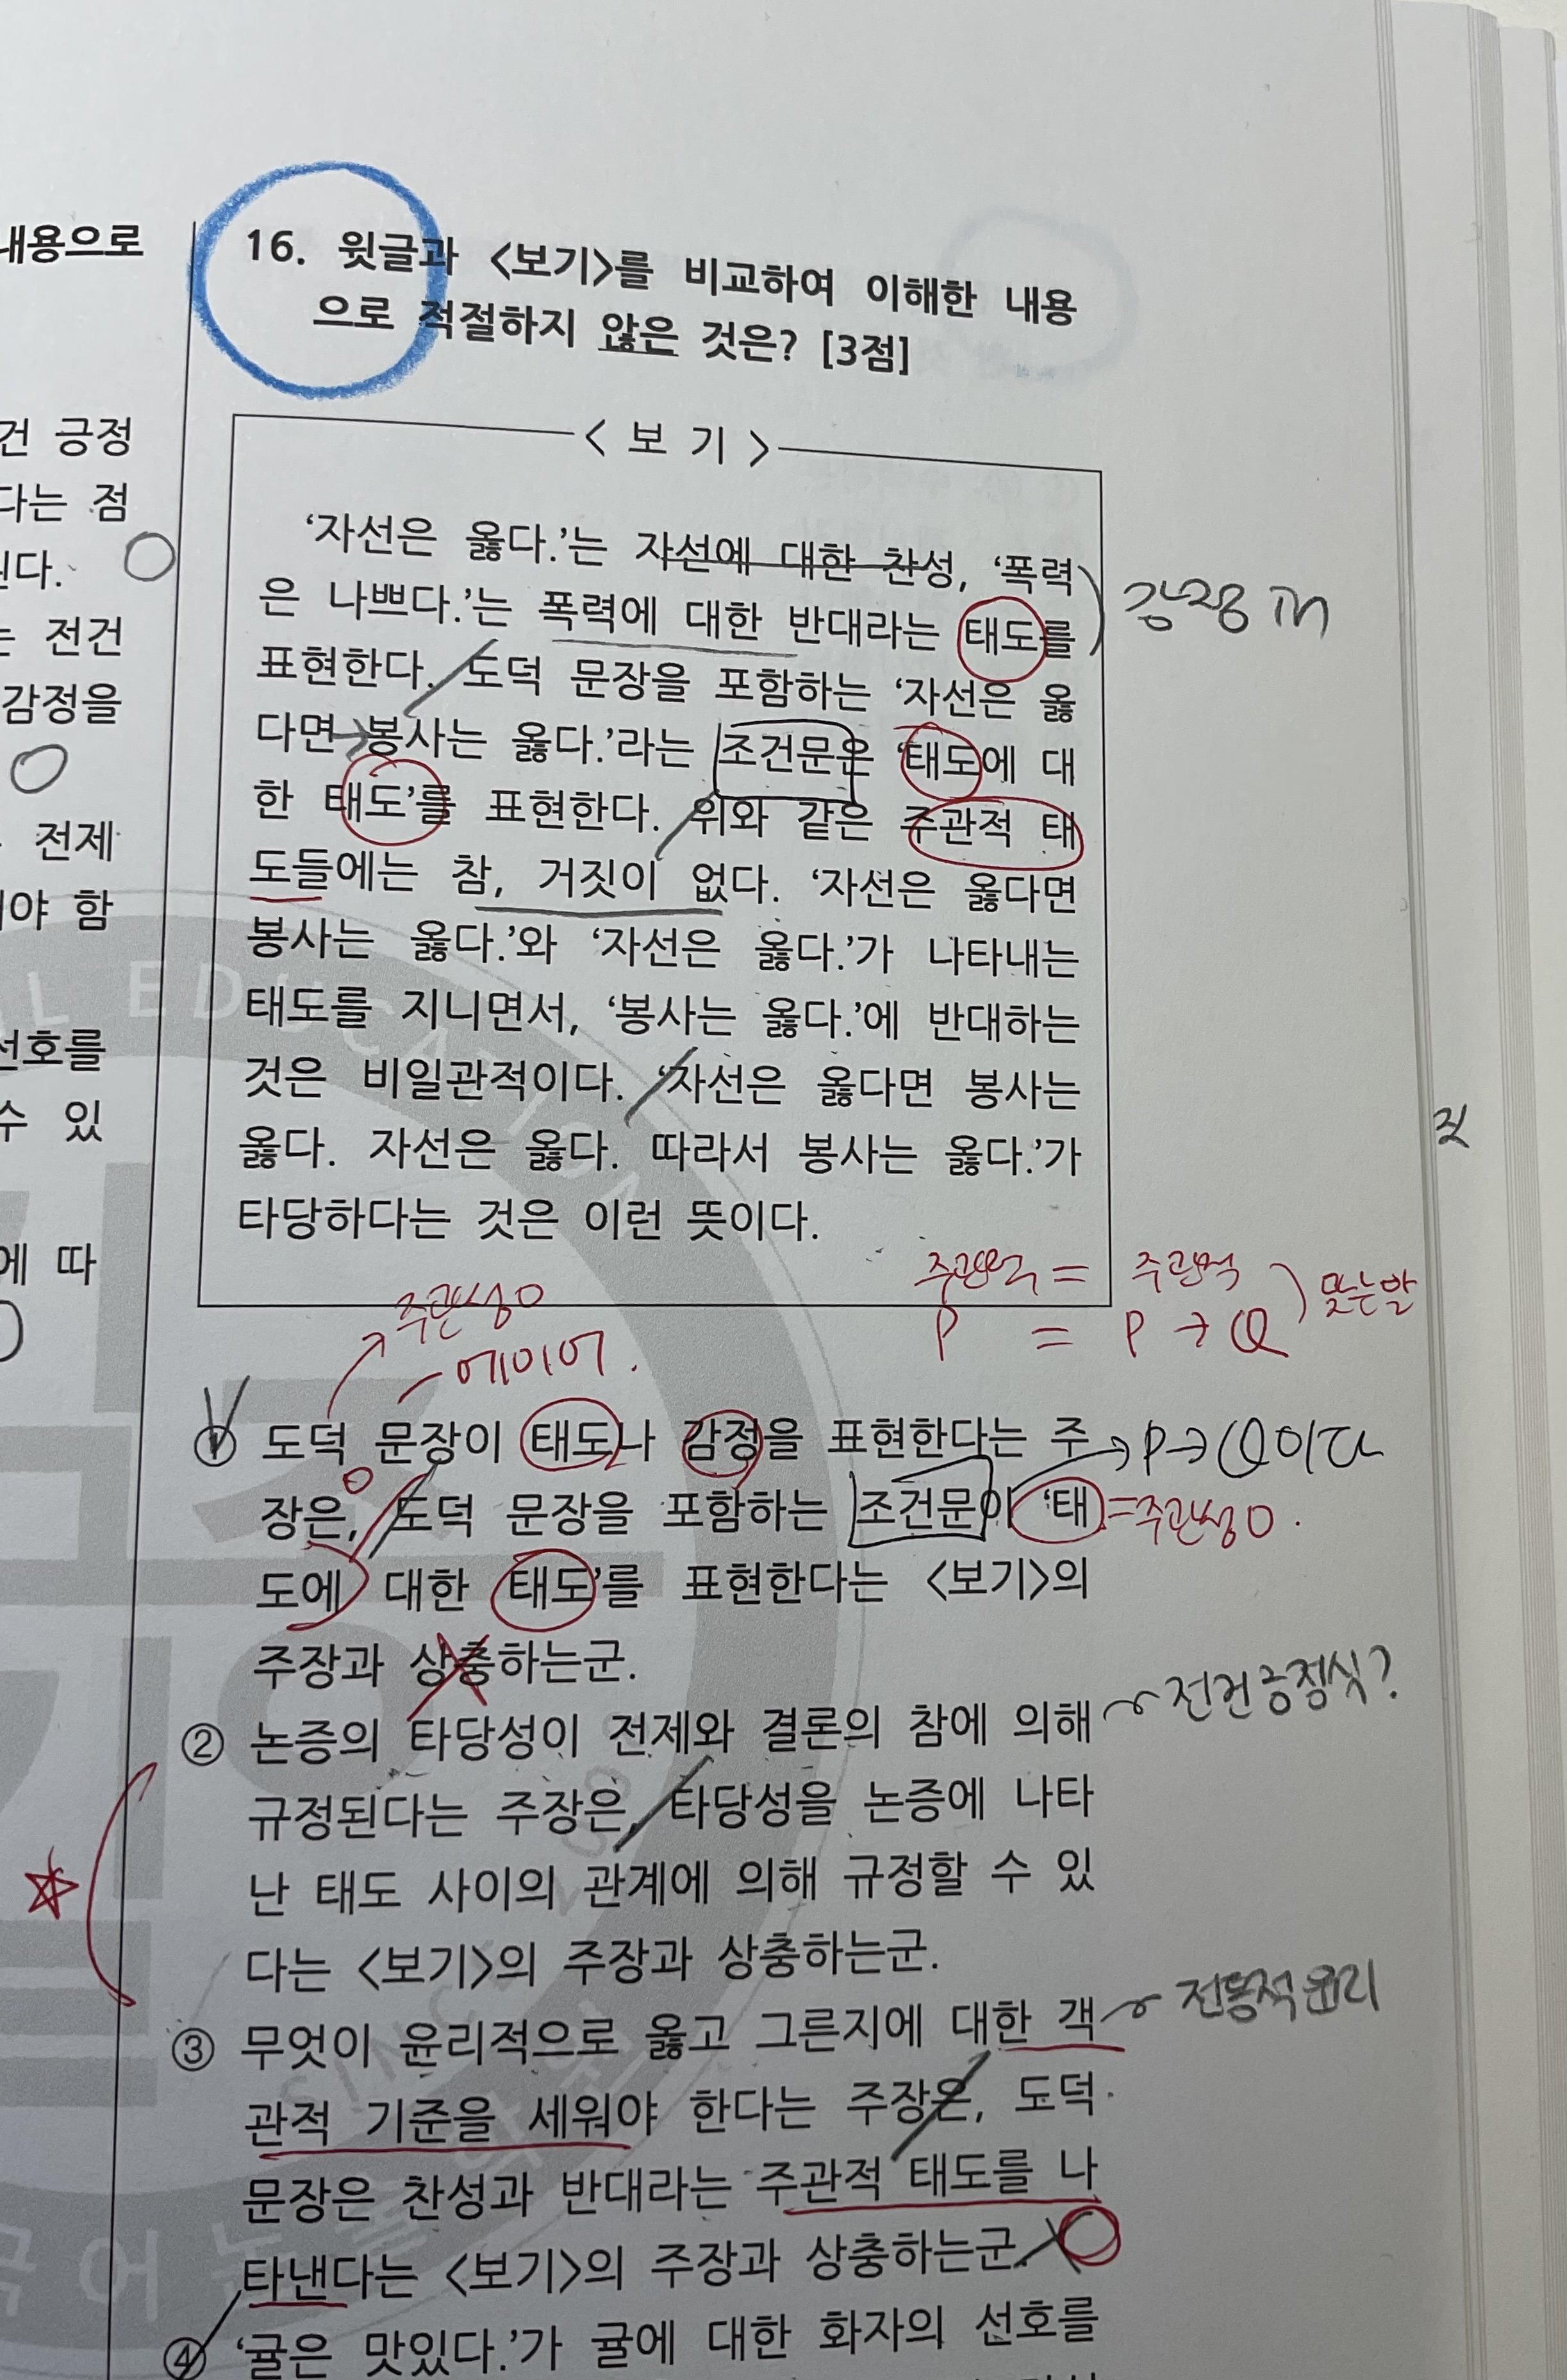 내용으로
건 긍정
다는 점
된다.
는 전건
감정을
전제
야 함
선호를
수 있
에 따
16. 윗글과 <보기>를 비교하여 이해한 내용
으로 적절하지 않은 것은? [3점]
< 보 기 >
‘자선은 옳다.’는 자선에 대한 찬성, ‘폭력
은 나쁘다.’는 폭력에 대한 반대라는 태도를
표현한다. 도덕 문장을 포함하는 ‘자선은 옳
다면 봉사는 옳다.’라는 조건문은 ‘태도에 대
한 태도’를 표현한다. 위와 같은 주관적 태
도들에는 참, 거짓이 없다. ‘자선은 옳다면
봉사는 옳다.’와 ‘자선은 옳다.’가 나타내는
태도를 지니면서, ‘봉사는 옳다.’에 반대하는
것은 비일관적이다. ‘자선은 옳다면 봉사는
옳다. 자선은 옳다. 따라서 봉사는 옳다.’가
타당하다는 것은 이런 뜻이다.
주관적 = 주관적
P = P → Q
맞는말
주관성O
에이어.
① 도덕 문장이 태도나 감정을 표현한다는 주
→ P→Q이다
장은, 도덕 문장을 포함하는 조건문이 ‘태
=주관성O.
도에 대한 태도’를 표현한다는 <보기>의
주장과 상충하는군.
② 논증의 타당성이 전제와 결론의 참에 의해
전건긍정식?
규정된다는 주장은, 타당성을 논증에 나타
난 태도 사이의 관계에 의해 규정할 수 있
다는 <보기>의 주장과 상충하는군.
③ 무엇이 윤리적으로 옳고 그른지에 대한 객
전통적윤리
관적 기준을 세워야 한다는 주장은, 도덕
문장은 찬성과 반대라는 주관적 태도를 나
타낸다는 <보기>의 주장과 상충하는군.
④ ‘귤은 맛있다.’가 귤에 대한 화자의 선호를